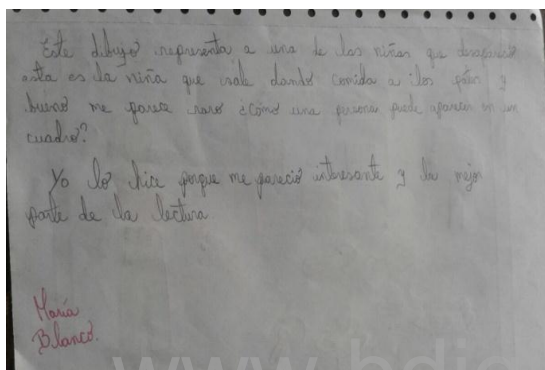 Este dibujo representa a una de las niñas que desapareció
esta es la niña que sale dando comida a los patos y
bueno me parece raro ¿Cómo una persona puede aparecer en un
cuadro?
Yo lo hice porque me pareció interesante y la mejor
parte de la lectura
María
Blanco.